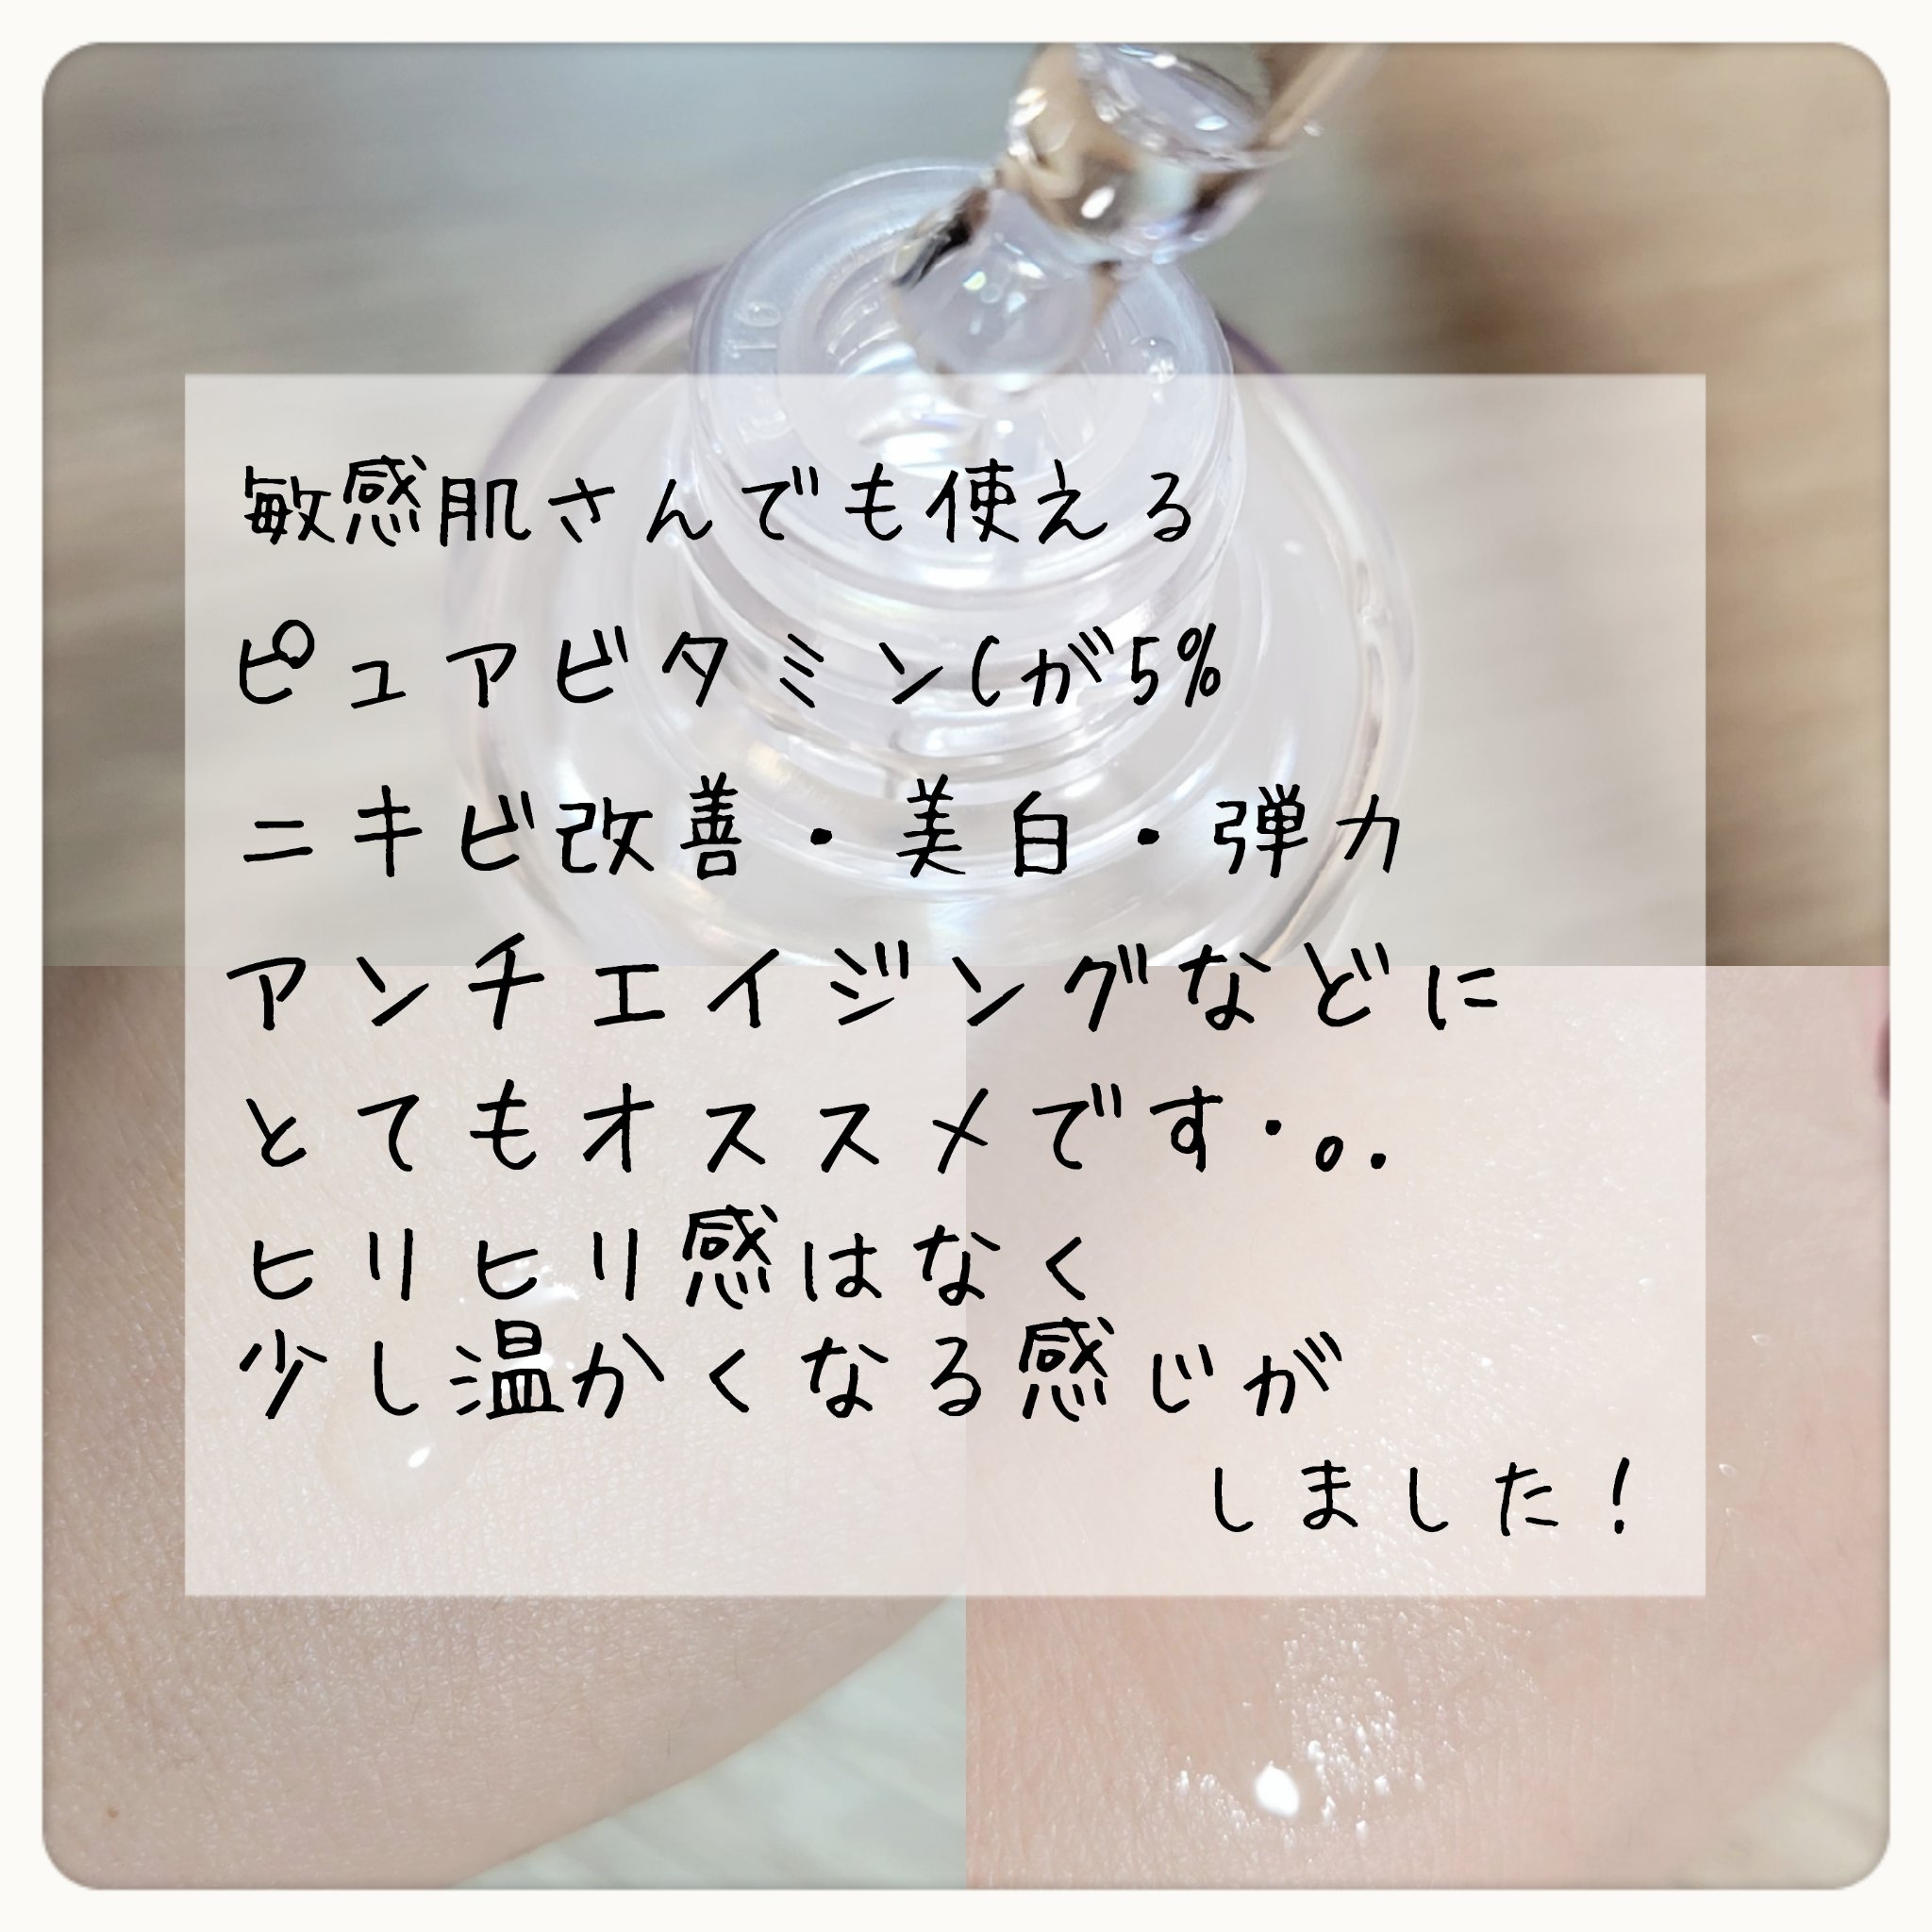 敏感肌さんでも使える
ピュアビタミンCが5%
ニキビ改善・美白・弾力
アンチエイジングなどに
とてもオススメです･o.
ヒリヒリ感はなく
少し温かくなる感じが
しました!